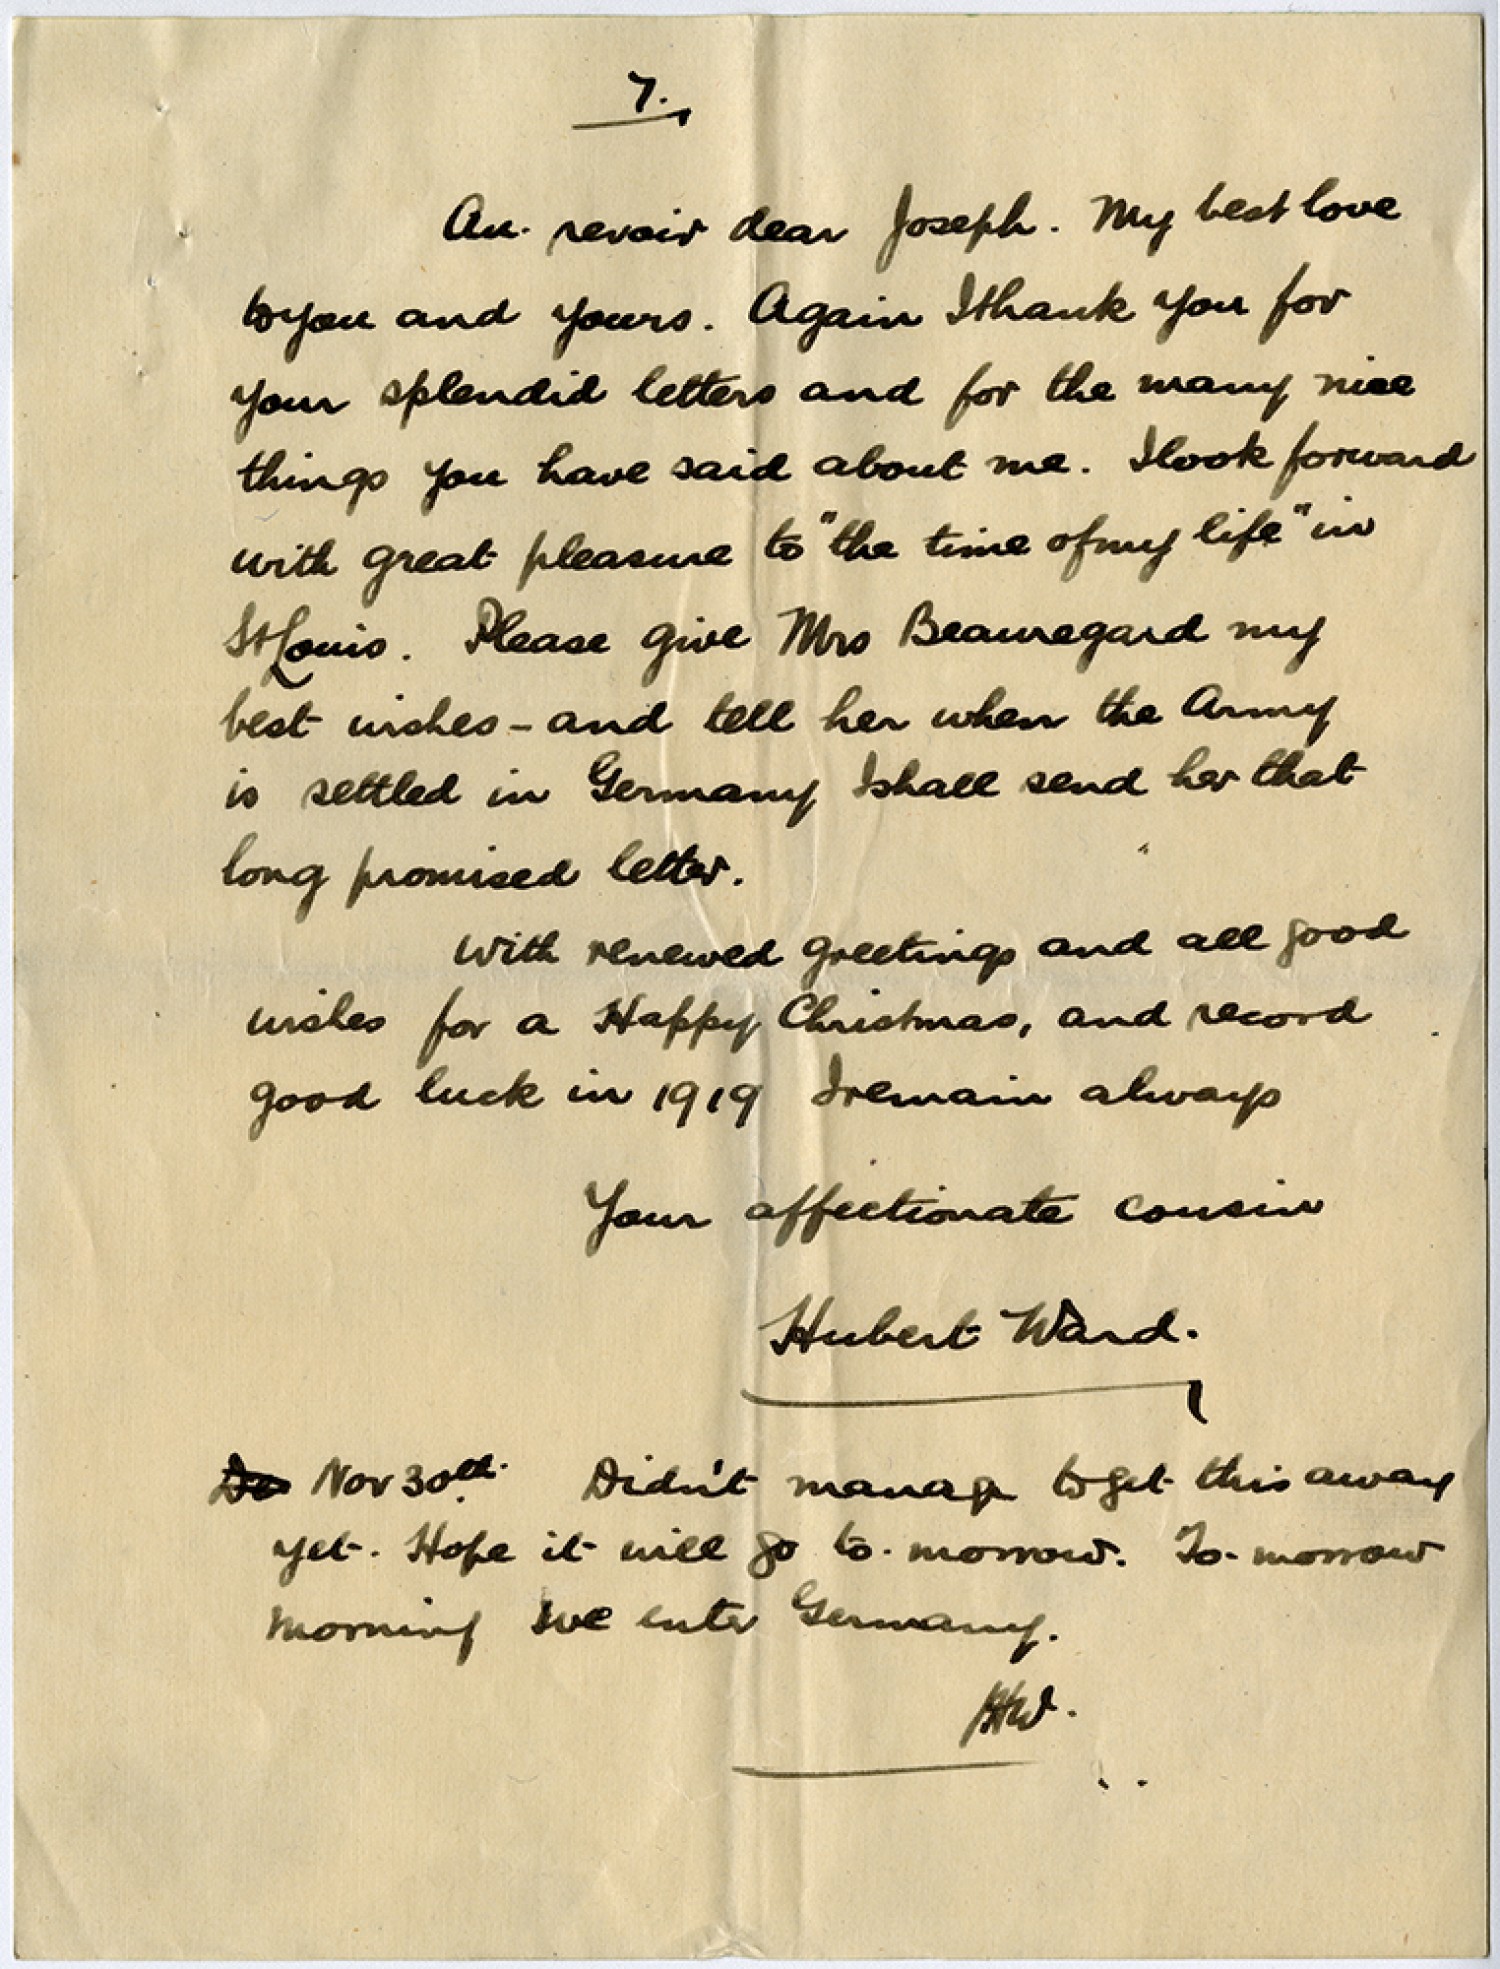 7.
Au. revoir dear Joseph. My best love
to you and yours. Again I thank you for
your splendid letters and for the many nice
things you have said about me. I look forward
with great pleasure to "the time of my life" in
St Louis. Please give Mrs Beauregard my
best wishes - and tell her when the Army
is settled in Germany I shall send her that
long promised letter.
With renewed greetings and all good
wishes for a Happy Christmas, and record
good luck in 1919 I remain always
Your affectionate cousin
Hubert Ward.
De Nov 30th. Didn't manage to get this away
yet. Hope it will go to-morrow. To-morrow
morning we enter Germany.
HW.